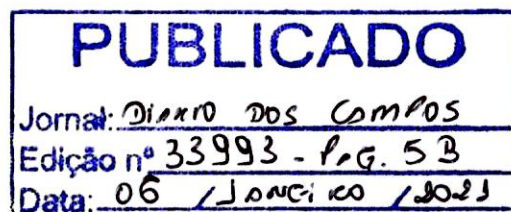 PUBLICADO
Jornal: DIARIO DOS CAMPOS
Edição nº 33993 - PAG. 5B
Data: 06 / JANEIRO / 2021